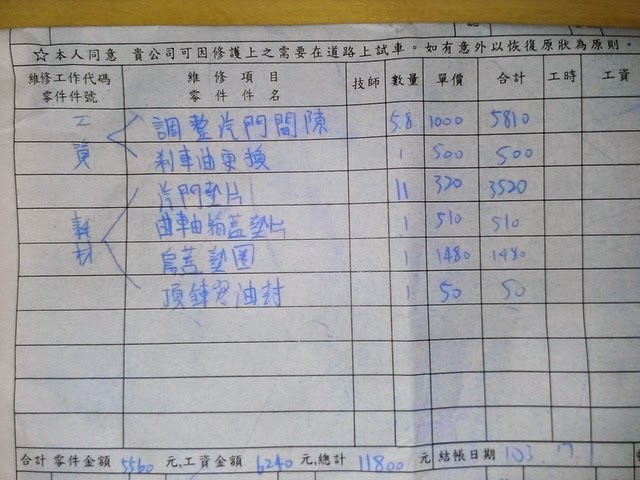 ☆本人同意 貴公司可因修護上之需要在道路上試車。如有意外以恢復原狀為原則。
維修工作代碼 零件件號 維修項目 零件件名 技師 數量 單價 合計 工時 工資
工資 調整汽門間隙 5.8 1000 5810
剎車油更換 1 500 500
耗材 汽門墊片 11 320 3520
曲軸油箱蓋墊片 1 510 510
墊圈 1 1480 1480
油封 1 50 50
合計 零件金額 5560 元,工資金額 6240 元,總計 11800 元 結帳日期 103